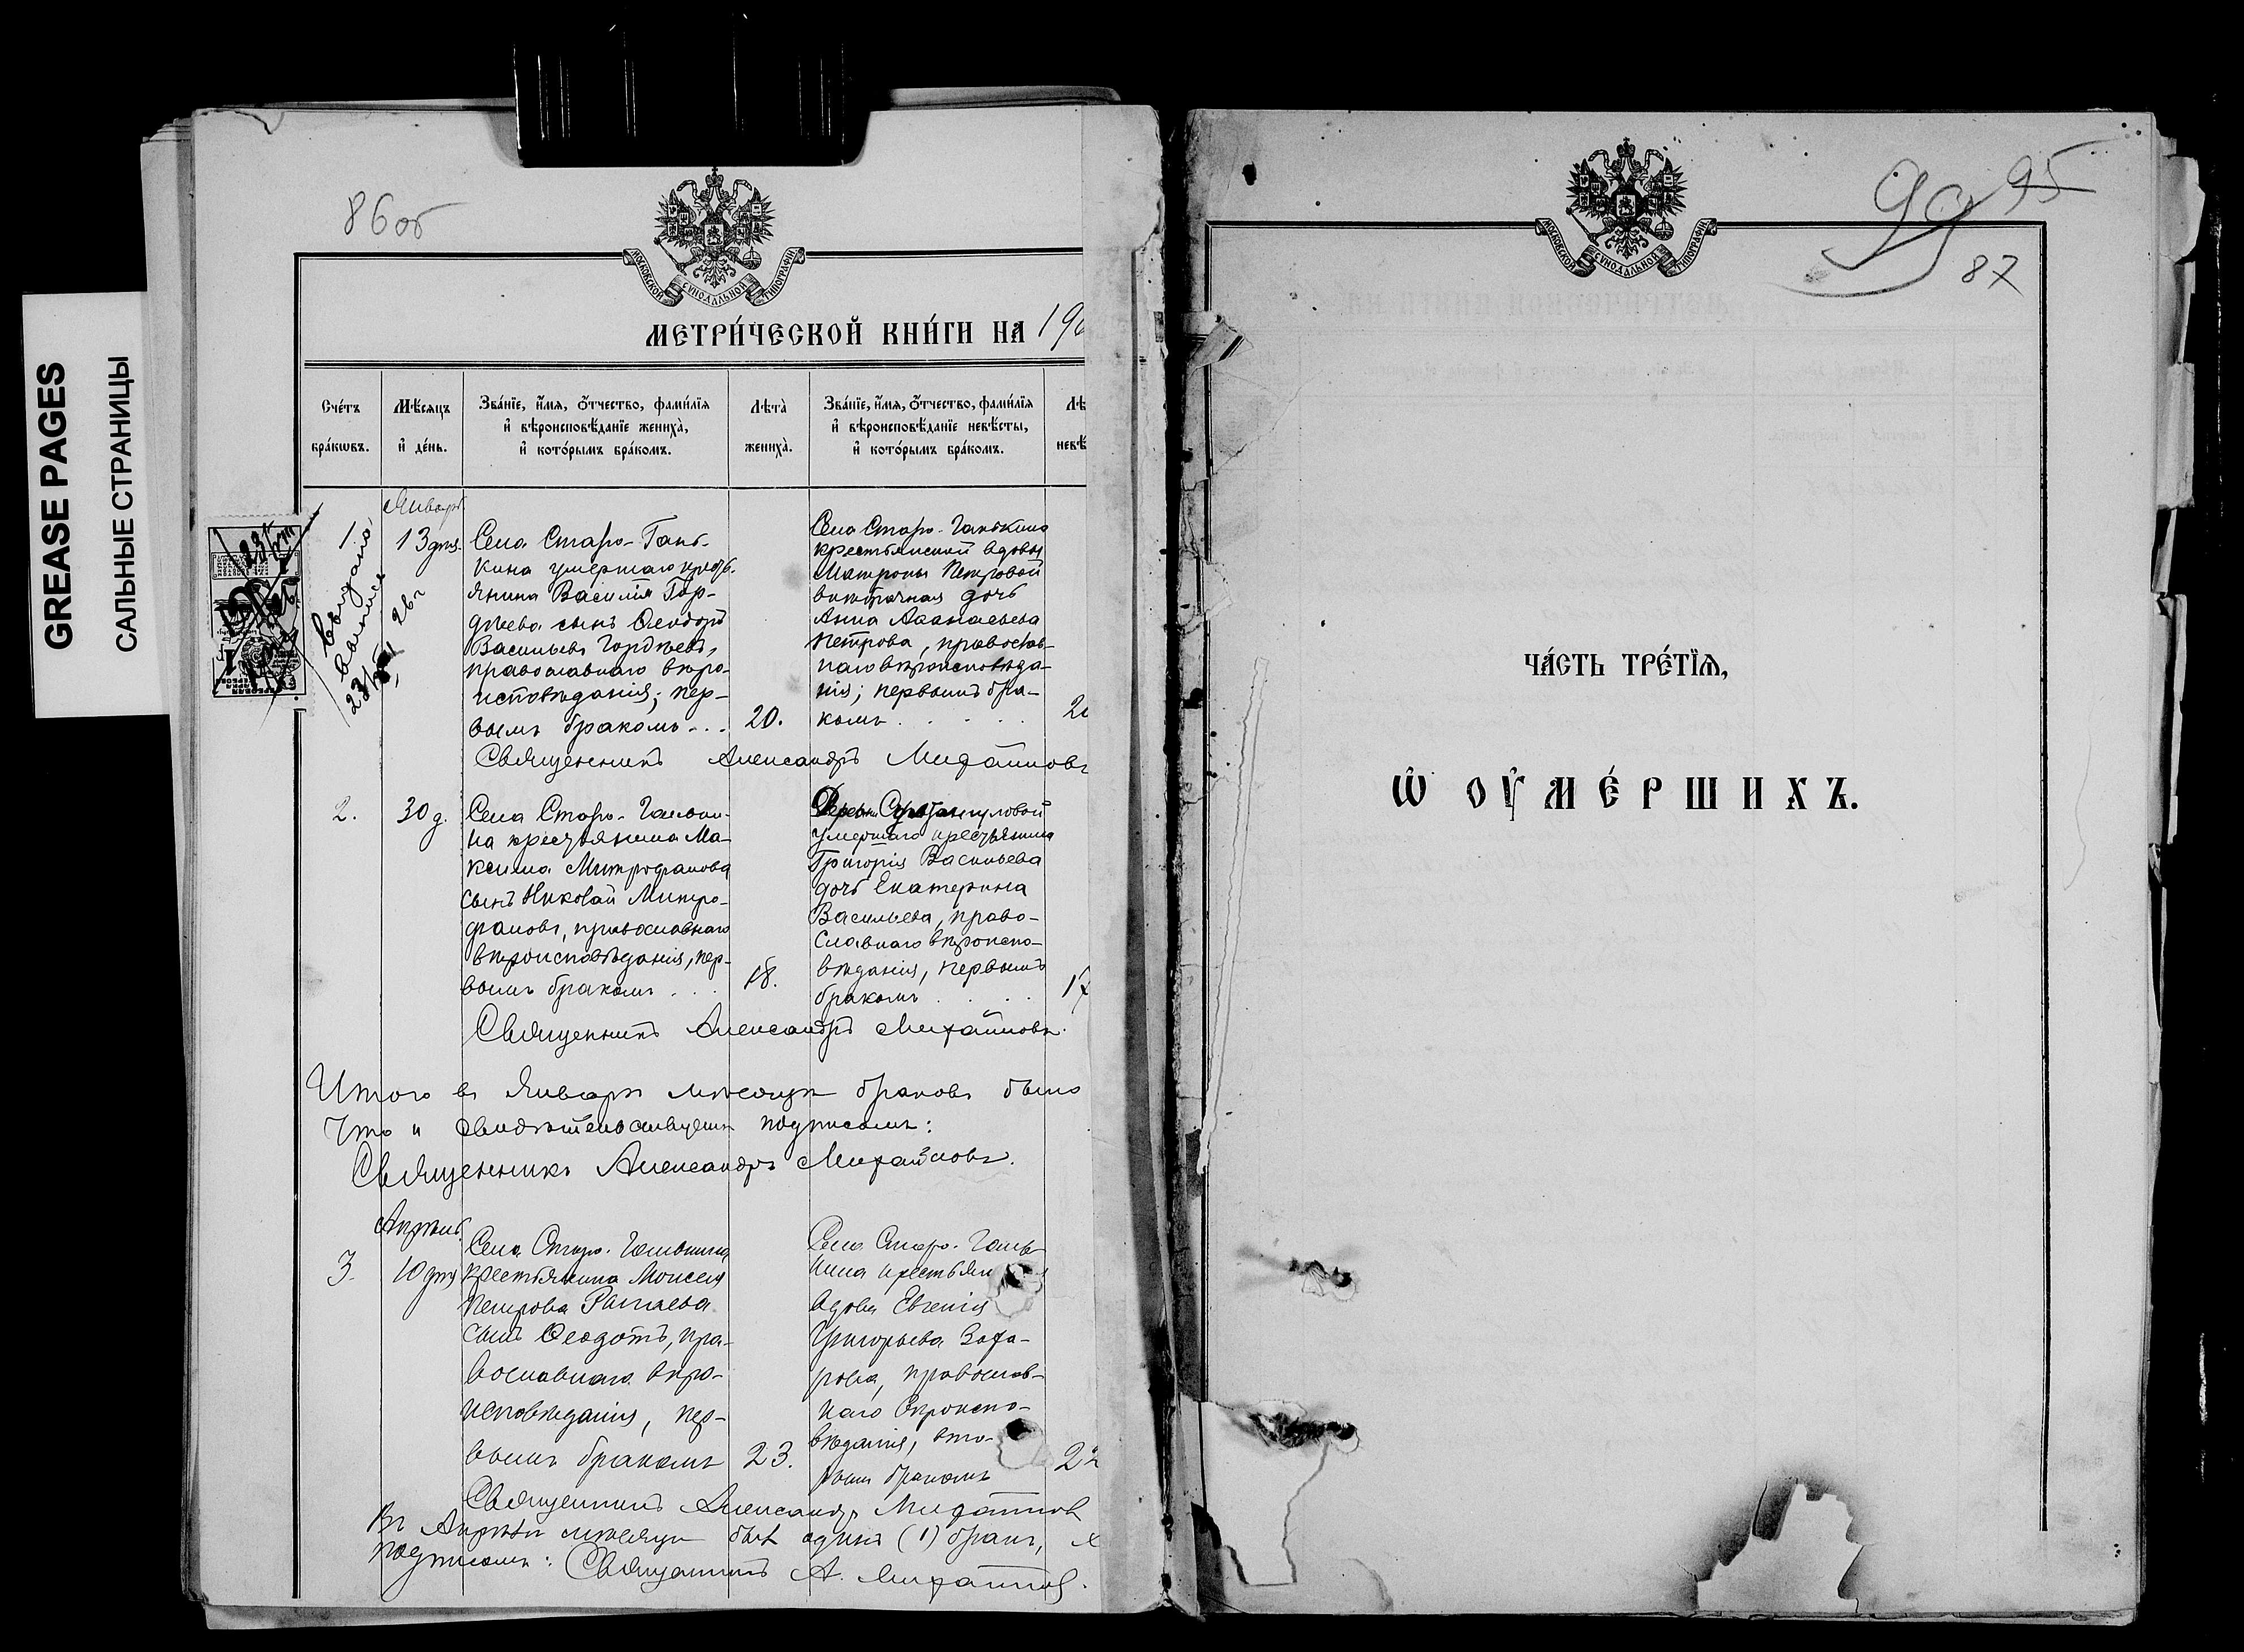 GREASE PAGES
САЛЬНЫЕ СТРАНИЦЫ
86об
МОСКОВСКОЙ СУНОДАЛЬНОЙ ТИПОГРАФІИ
МЕТРИ́ЧЕСКОЙ КНИ́ГИ НА 190
Сче́тъ бра́кωвъ.
Мѣ́сяцъ и҆ де́нь.
Зва́нїе, и҆́мѧ, ѻ҆́тчество, фами́лїѧ и҆ вѣроисповѣ́данїе жениха̀, и҆ кото́рымъ бра́комъ.
Лѣта̀ жениха̀.
Зва́нїе, и҆́мѧ, ѻ҆́тчество, фами́лїѧ и҆ вѣроисповѣ́данїе невѣ́сты, и҆ кото́рымъ бра́комъ.
Лѣ
невѣ́
Январь
1.
13 дня.
Выдано
выписе
Села Старо-Гань-
кина умершаго крест.
янина Василія Гор-
дѣева сынъ Ѳеодоръ
Васильевъ Гордѣевъ,
православнаго вѣро-
исповѣданія; пер-
вымъ бракомъ...
20.
Села Старо-Ганькина
крестьянской вдовы
Матроны Петровой
внѣбрачная дочь
Анна Аѳанасьева
Петрова, православ-
наго вѣроисповѣда-
нія; первымъ бра-
комъ.....
2
Священникъ Александръ Михайловъ
2.
30 д.
Села Старо-Ганьки-
на крестьянина Ма-
ксима Митрофанова
сынъ Николай Митро-
фановъ, православнаго
вѣроисповѣданія, пер-
вымъ бракомъ...
18.
Деревни
умершаго крестьянина
Григорія Васильева
дочь Екатерина
Васильева, право-
славнаго вѣроиспо-
вѣданія, первымъ
бракомъ....
17
Священникъ Александръ Михайловъ.
Итого въ Январѣ мѣсяцѣ браковъ было
Что и свидѣтельствуемъ подписомъ:
Священникъ Александръ Михайловъ.
Апрѣль
3.
10 дня
Села Старо-Ганькина
крестьянина Моисея
Петрова
сынъ Ѳеодотъ, пра-
вославнаго вѣро-
исповѣданія, пер-
вымъ бракомъ
23.
Села Старо-Гань-
кина крестьян
вдова Евгенія
Григорьева Заха-
рова, православ-
наго вѣроиспо-
вѣданія, вто-
рымъ бракомъ
22
Священникъ Александръ Михайлов
Въ Апрѣлѣ мѣсяцѣ былъ одинъ (1) бракъ,
подписомъ: Священникъ А. Михайлов.
МОСКОВСКОЙ СУНОДАЛЬНОЙ ТИПОГРАФІИ
99 95
87
ЧА́СТЬ ТРЕ́ТЇѦ,
Ѡ҆ ОУ҆МЕ́РШИХЪ.